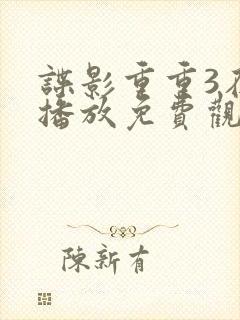 諜影重重3
播放免費觀
陳新有